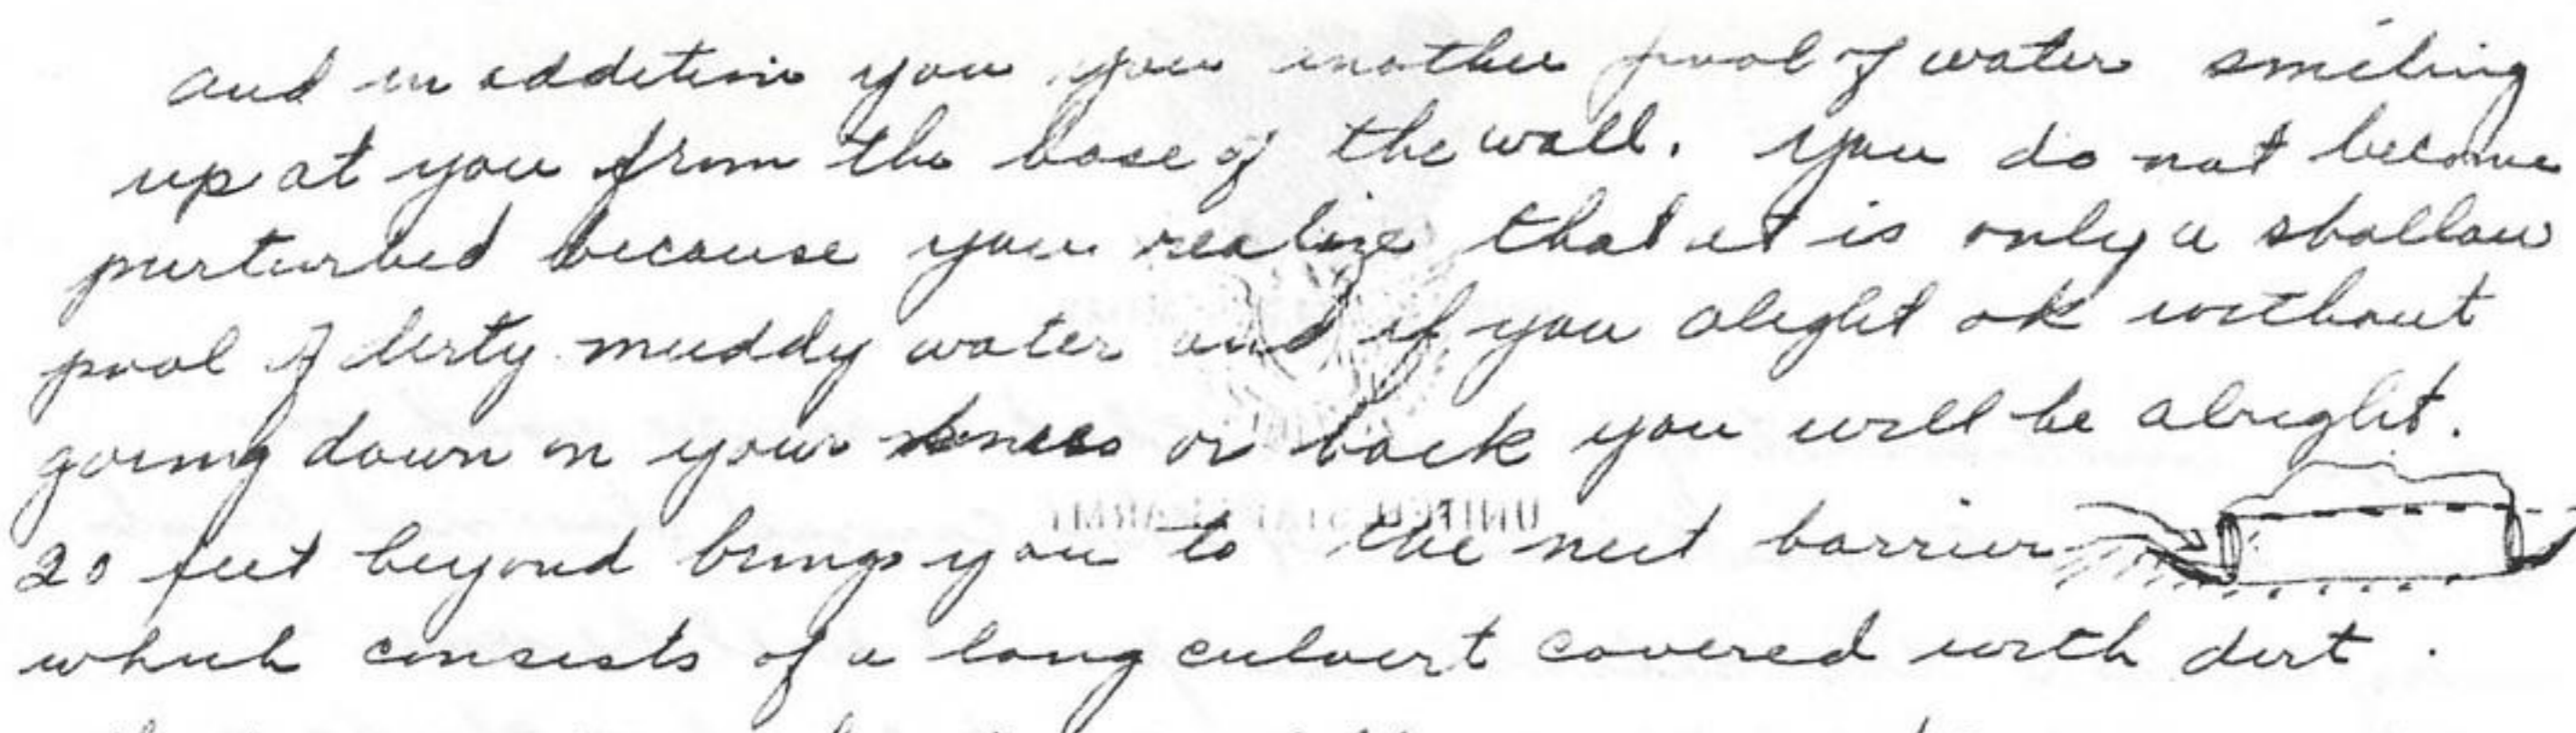 and in addition you you another pool of water smiling
up at you from the base of the wall. You do not become
purturbed because you realize that it is only a shallow
pool of dirty muddy water and if you alight ok without
going down on your knees or back you will be alright.
20 feet beyond brings you to the next barrier
which consists of a long culvert covered with dirt.